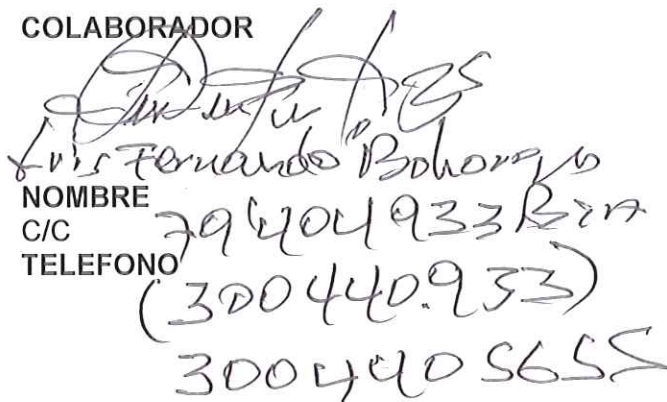 COLABORADOR
Luis Fernando Bohorquez
NOMBRE
C/C 79'404933 Bta
TELEFONO
(300440.933)
3004405655